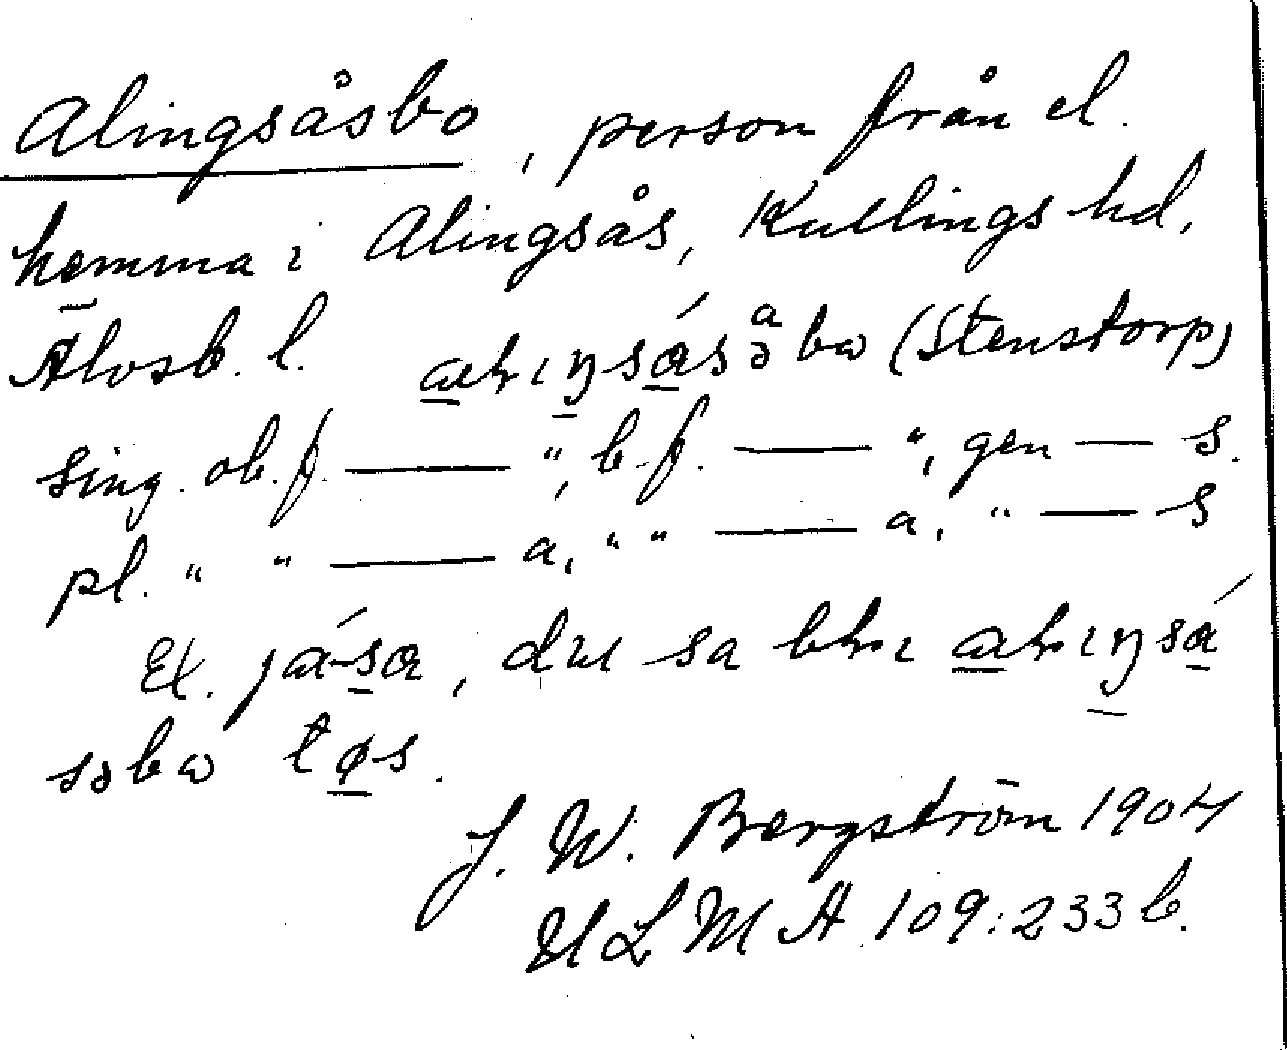 Alingsåsbo, person från el.
hemma i Alingsås, Kullings hd,
Älvsb. l. (Stenstorp)
sing. ob. f. — ", b. f. — ", gen — s.
pl. " " — a, " " — a, " — s
Ex. du sa
J. W. Bergström 1904
ULMA 109:233 b.